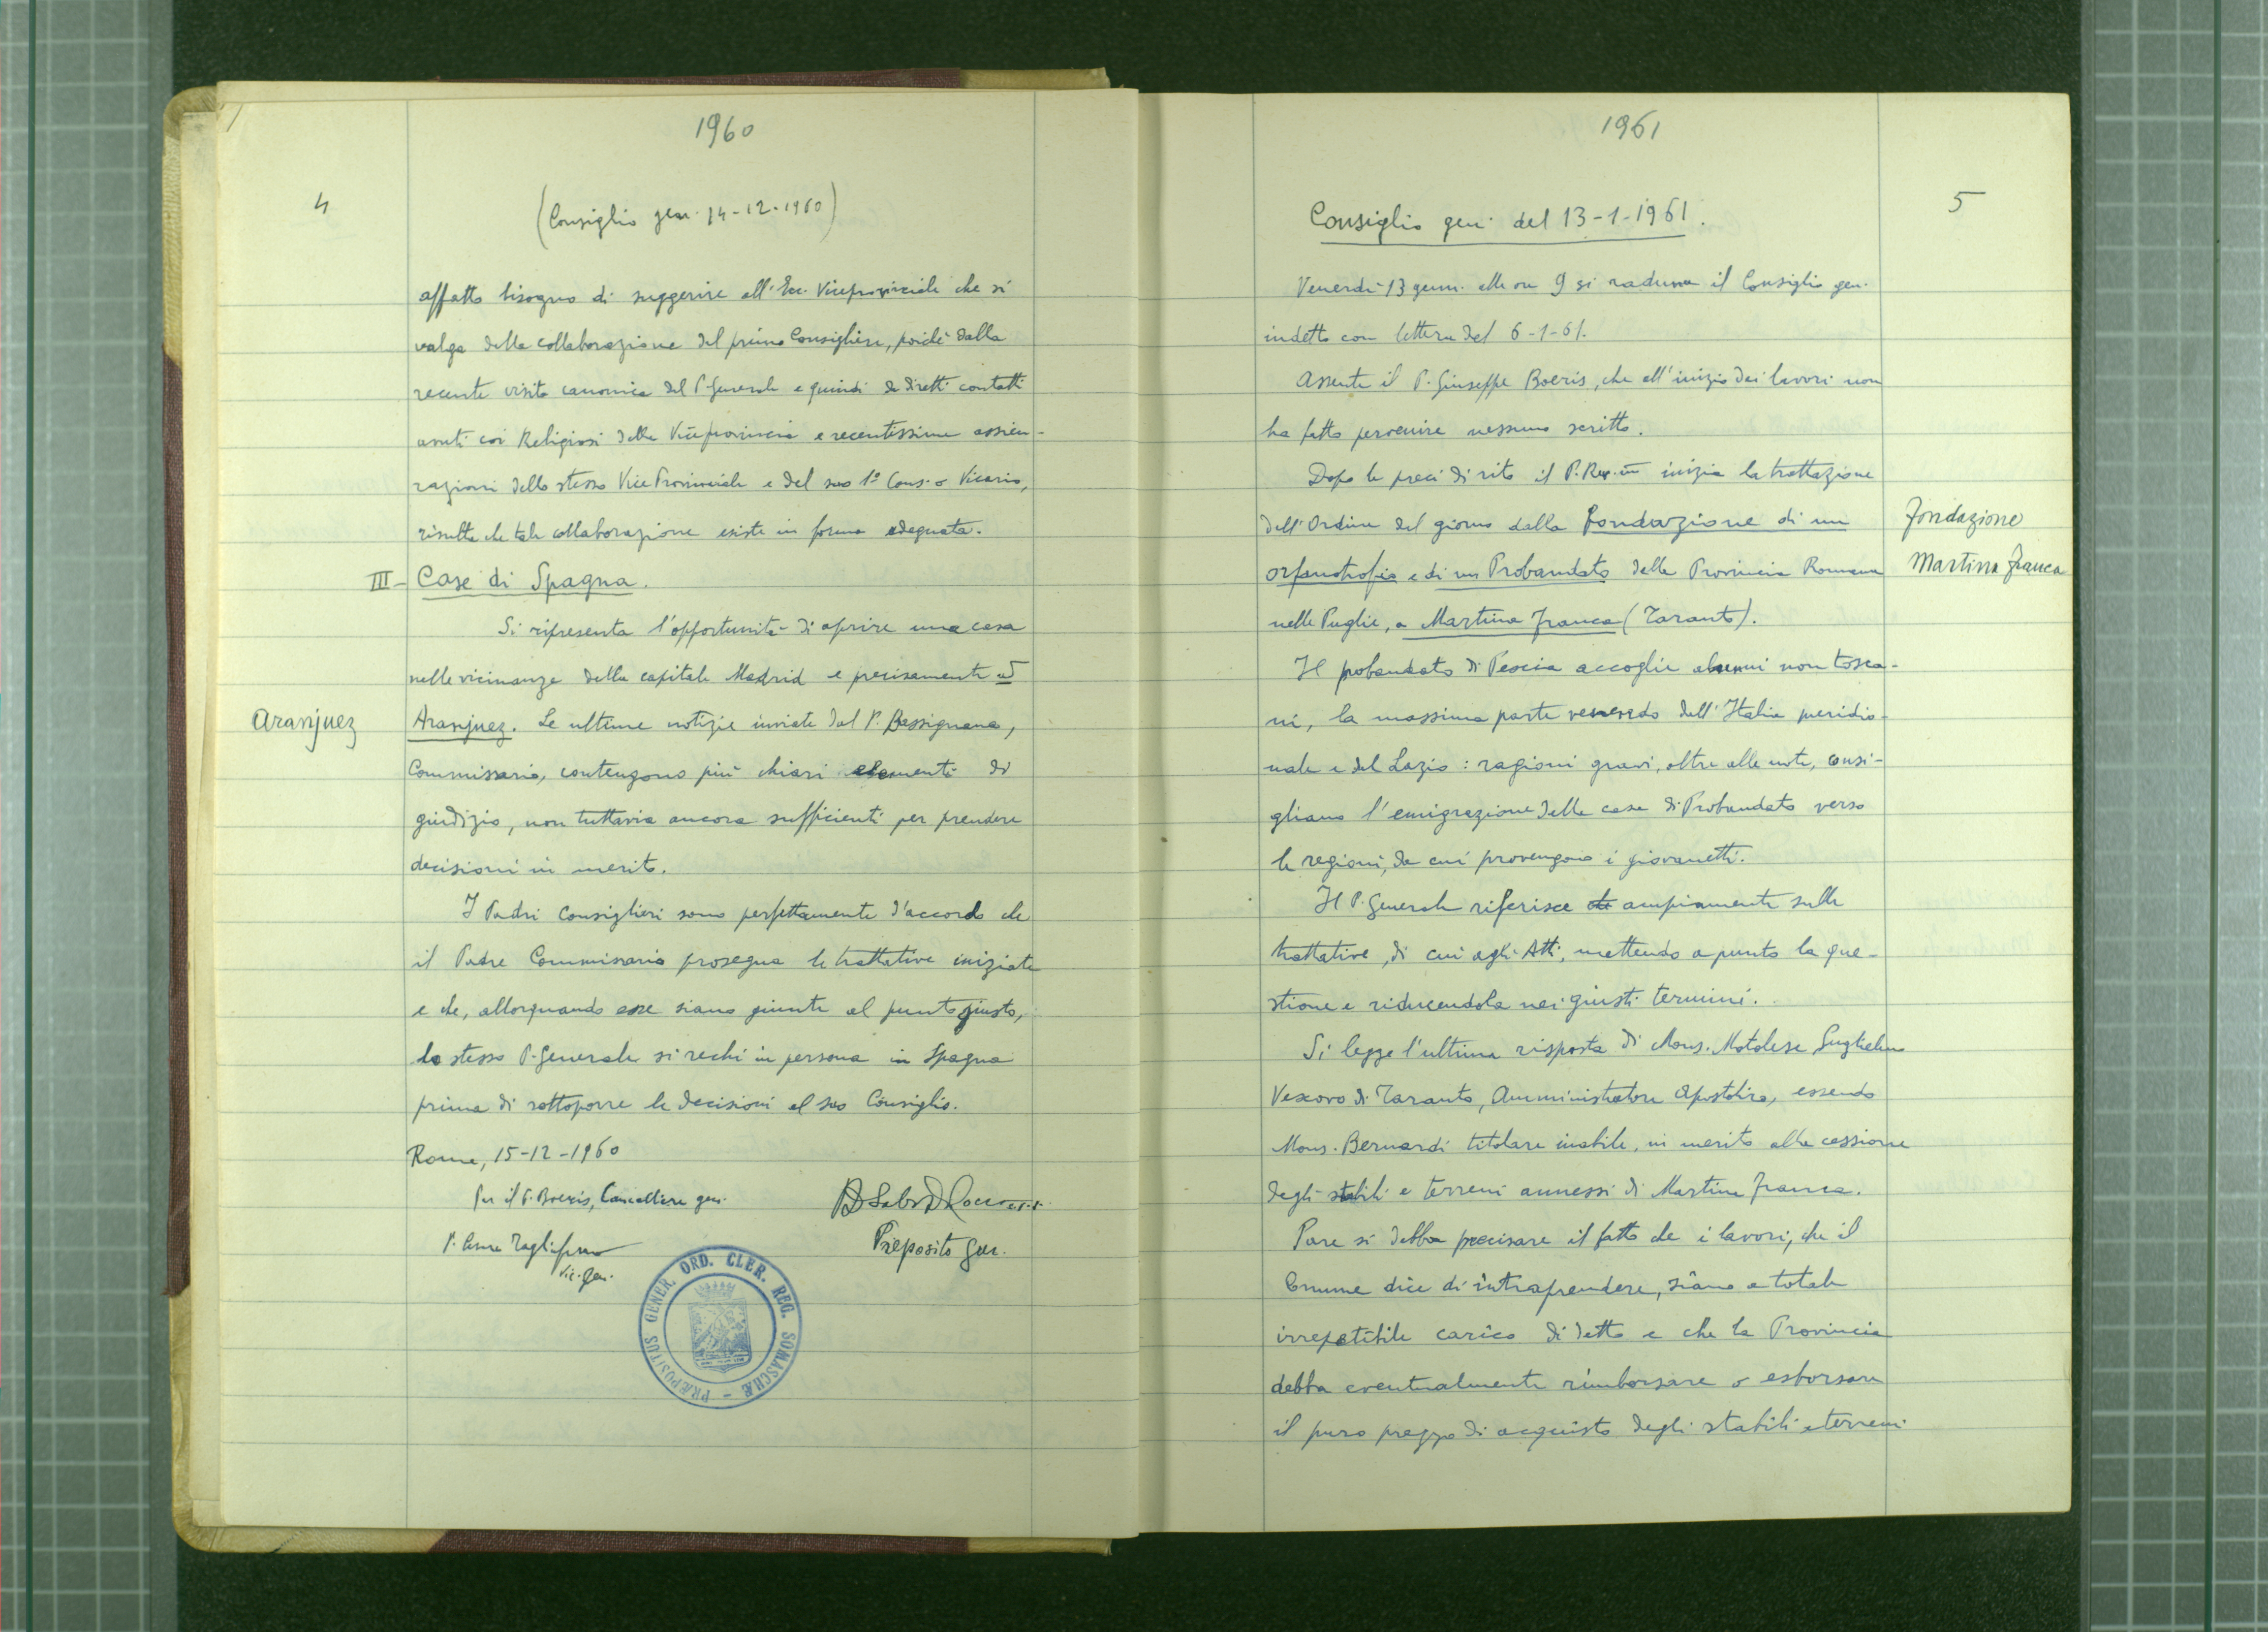 1960
4
(Consiglio gen. 14-12-1960)
affatto bisogno di suggerire all'Ecc. Viceprovinciale che si
valga della collaborazione del primo Consigliere, poiché dalla
recente visita canonica del P. Generale e quindi da diretti contatti
avuti coi Religiosi della Viceprovincia e recentissime assicu-
razioni dello stesso Vice Provinciale e del suo 1º Cons. o Vicario,
risulta che tale collaborazione esiste in forma adeguata.
III- Case di Spagna.
Si ripresenta l'opportunità di aprire una casa
nelle vicinanze della capitale Madrid e precisamente ad
Aranjuez
Aranjuez. Le ultime notizie inviate dal P. Bassignana,
Commissario, contengono più chiari elementi di
giudizio, non tuttavia ancora sufficienti per prendere
decisioni in merito.
I Padri Consiglieri sono perfettamente d'accordo che
il Padre Commissario prosegua le trattative iniziate
e che, allorquando esse siano giunte al punto giusto,
lo stesso P. Generale si rechi in persona in Spagna
prima di sottoporre le decisioni al suo Consiglio.
Roma, 15-12-1960
Per il P. Boeris, Cancelliere gen.
P. Tagliaferro
Vic. Gen.
Preposito Gen.
PRÆPOSITUS GENER. ORD. CLER. REG. SOMASCHÆ -
1961
5
Consiglio gen. del 13-1-1961.
Venerdì 13 genn. alle ore 9 si raduna il Consiglio gen.
indetto con lettera del 6-1-61.
Assente il P. Giuseppe Boeris, che all'inizio dei lavori non
ha fatto pervenire nessuno scritto.
Dopo le preci di rito il P. Rev.mo inizia la trattazione
dell'Ordine del giorno dalla Fondazione di un
Fondazione
orfanotrofio e di un Probandato della Provincia Romana
Martina Franca
nelle Puglie, a Martina Franca (Taranto).
Il probandato di Pescia accoglie alunni non tosca-
ni, la massima parte venendo dall'Italia meridio-
nale e del Lazio: ragioni gravi, oltre alle note, consi-
gliano l'emigrazione delle case di Probandato verso
le regioni, da cui provengono i giovanetti.
Il P. Generale riferisce che ampiamente sulle
trattative, di cui agli Atti, mettendo a punto la que-
stione e riducendola nei giusti termini.
Si legge l'ultima risposta di Mons. Motolese Guglielmo
Vescovo di Taranto, Amministratore Apostolico, essendo
Mons. Bernardi titolare inabile, in merito alla cessione
degli stabili e terreni annessi di Martina Franca.
Pare si debba precisare il fatto che i lavori, che il
Comune dice di intraprendere, siano a totale
irrepetibile carico di detto e che la Provincia
debba eventualmente rimborsare o esborsare
il puro prezzo di acquisto degli stabili e terreni